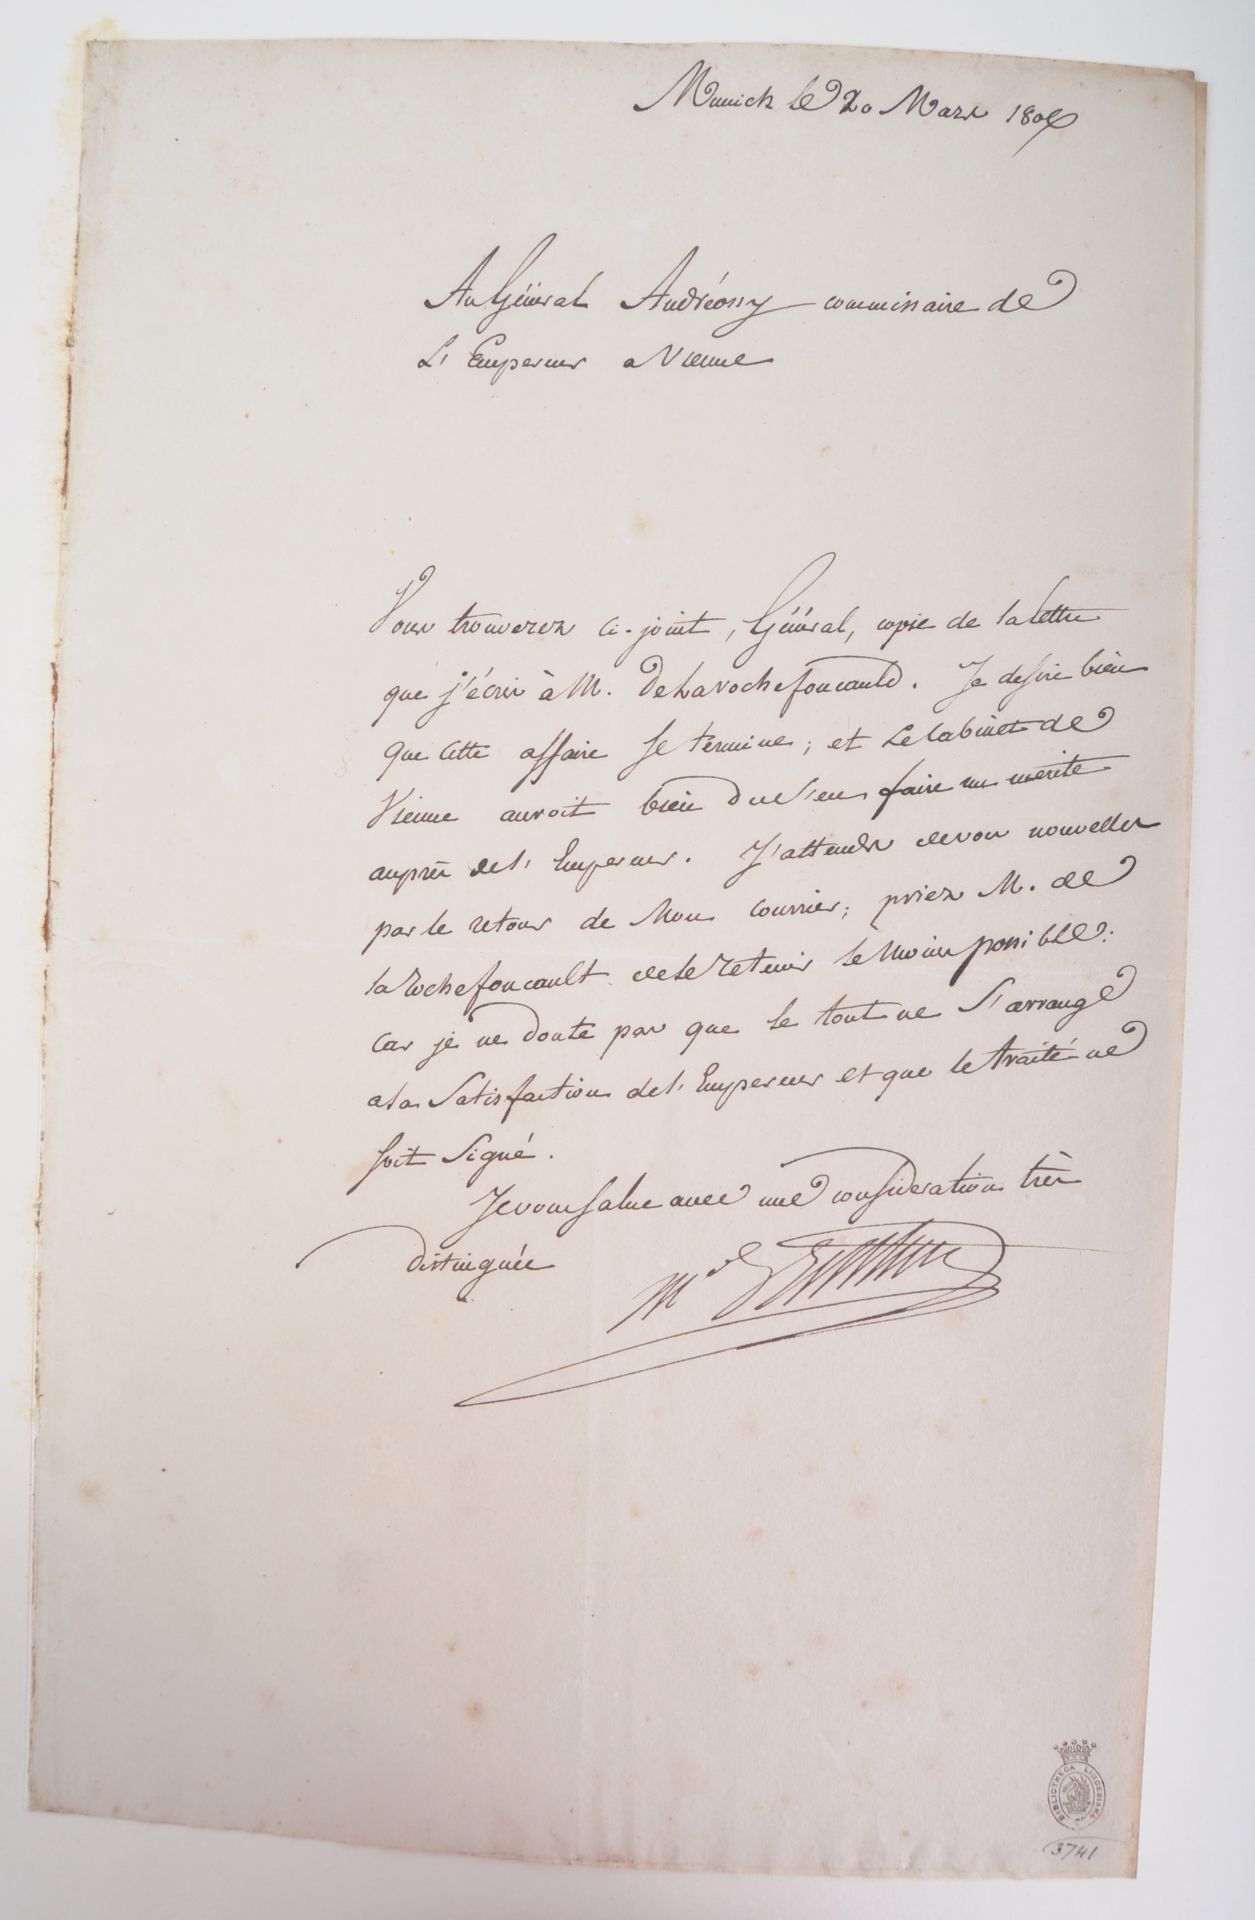 Munich le 20 Mars 180
Au Général Andréossy commissaire de
L'Empereur a Vienne
Vous trouverez ci-joint, Général, copie de la lettre
que j'écris à M. De Larochefoucauld. Je desire bien
que cette affaire se termine; et le Cabinet de
Vienne auroit bien du s'en faire un merite
auprès de l'Empereur. J'attends de vos nouvelles
par le retour de Mon courrier; priez M. de
larochefoucault de le retenir le Moins possible:
Car je ne doute pas que le tout ne s'arrange
a la Satisfaction de l'Empereur et que le traité ne
soit Signé.
Je vous salue avec une consideration très
distinguée
Mal
BIBLIOTHECA LINDESIANA
3741